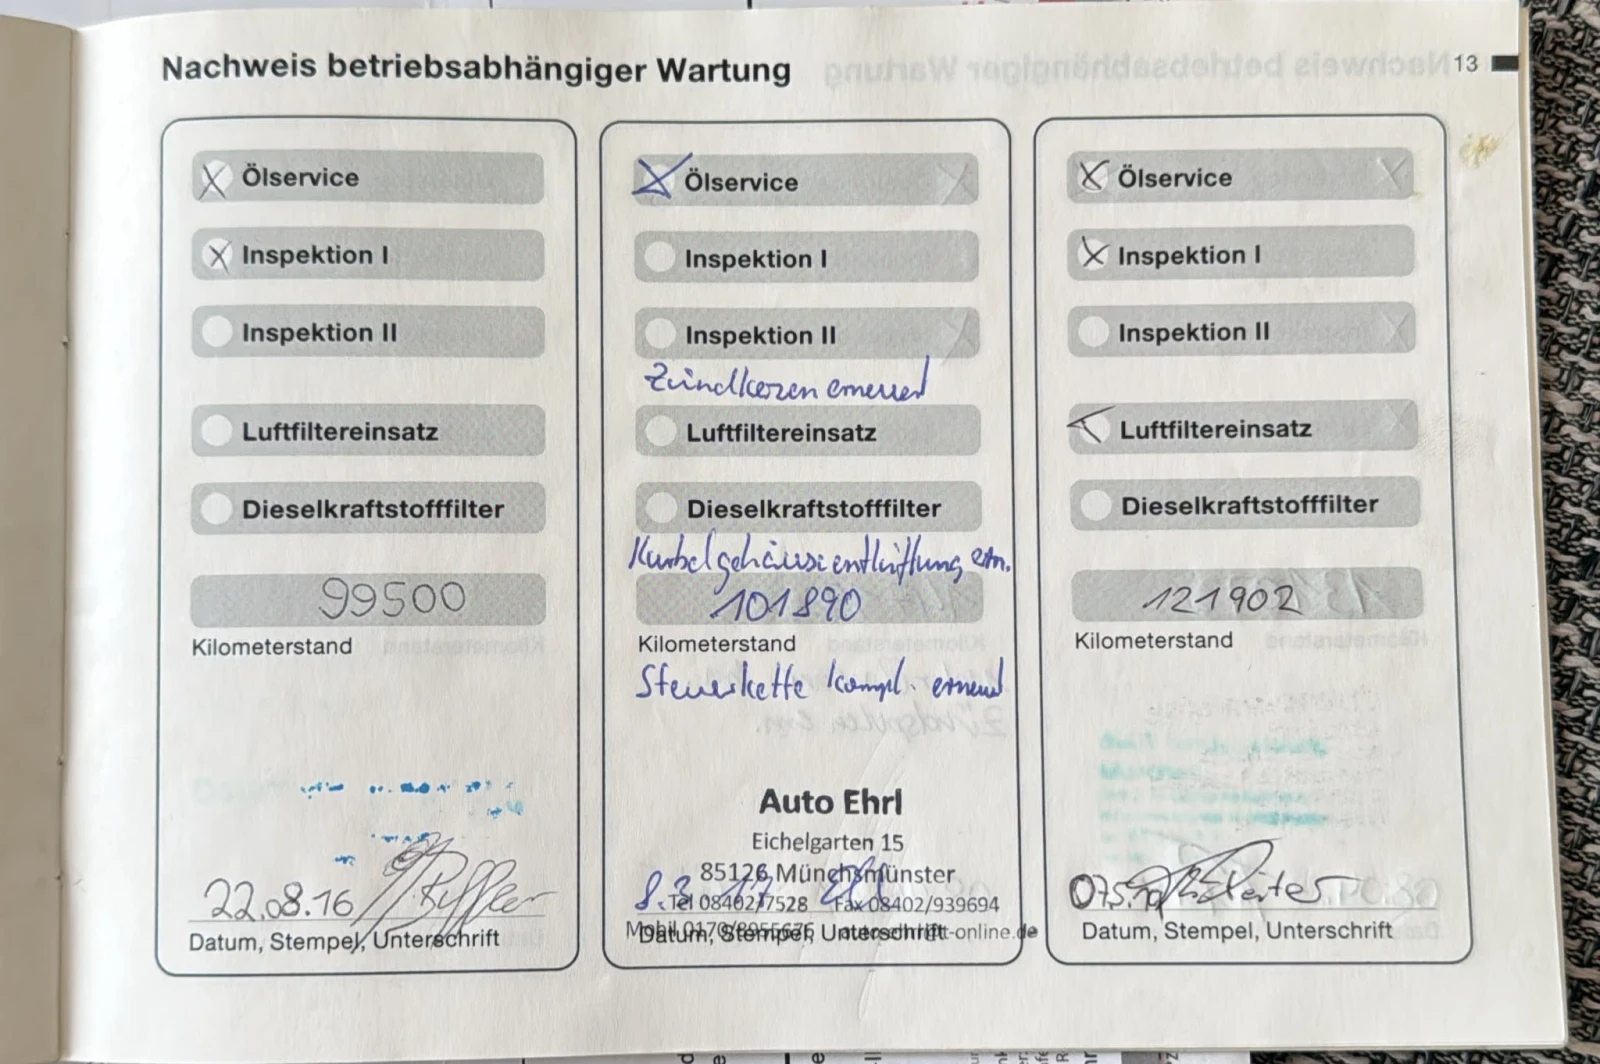 Nachweis betriebsabhängiger Wartung
13
Ölservice
Inspektion I
Inspektion II
Luftfiltereinsatz
Dieselkraftstofffilter
99500
Kilometerstand
22.08.16
Datum, Stempel, Unterschrift
Ölservice
Inspektion I
Inspektion II
Zündkerzen erneuert
Luftfiltereinsatz
Dieselkraftstofffilter
Kurbelgehäuseentlüftung ern.
101890
Kilometerstand
Steuerkette kompl. erneuert
Auto Ehrl
Eichelgarten 15
85126 Münchsmünster
8.3.17
Tel 08402/7528 Fax 08402/939694
Datum, Stempel, Unterschrift
Ölservice
Inspektion I
Inspektion II
Luftfiltereinsatz
Dieselkraftstofffilter
121902
Kilometerstand
Datum, Stempel, Unterschrift